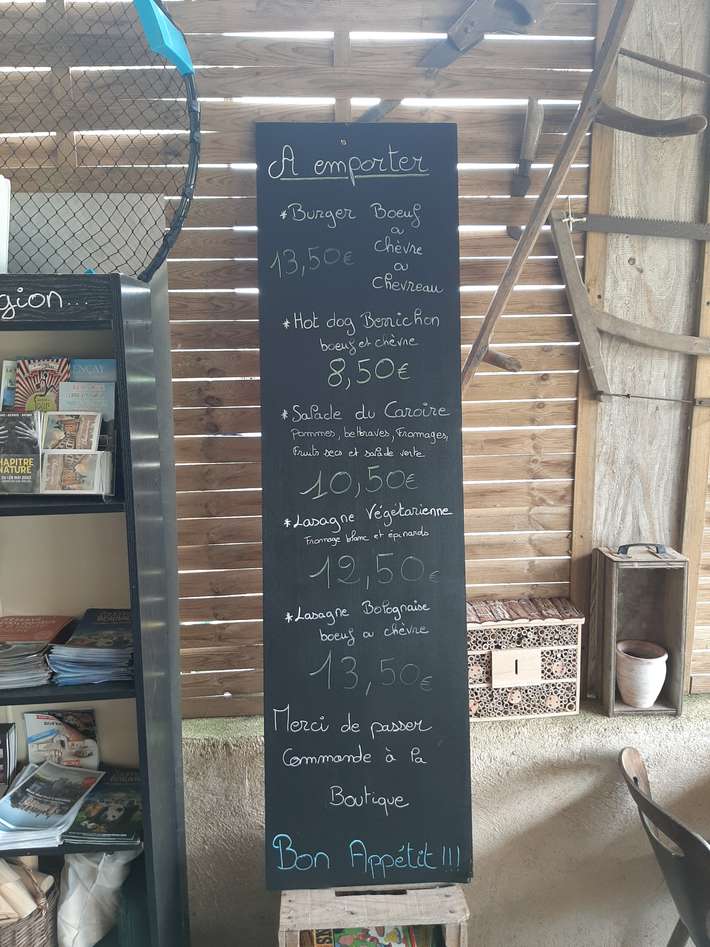 A emporter
*Burger Boeuf
ou
Chèvre
13,50€
ou
Chevreau
*Hot dog Berrichon
boeuf et chèvre
8,50€
*Salade du Caroire
Pommes, betteraves, Fromages,
Fruits secs et salade verte
10,50€
*Lasagne Végétarienne
Fromage blanc et épinards
12,50€
*Lasagne Bolognaise
boeuf ou chèvre
13,50€
Merci de passer
Commande à la
Boutique
Bon Appétit!!!
gion...
CHAPITRE
NATURE